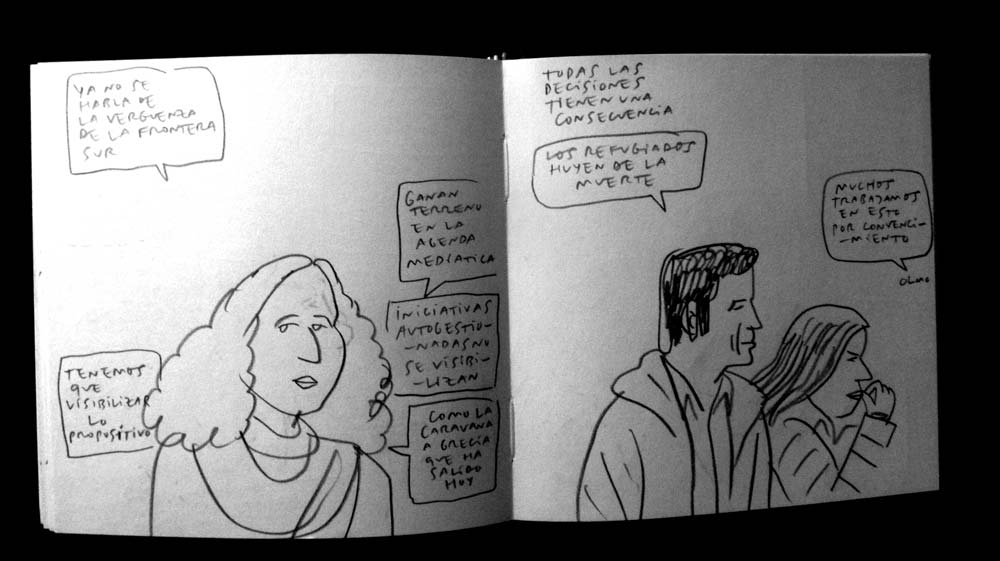 YA NO SE
HABLA DE
LA VERGUENZA
DE LA FRONTERA
SUR
GANAN
TERRENO
EN LA
AGENDA
MEDIATICA
INICIATIVAS
AUTOGESTIO-
-NADAS NO
SE VISIBI-
-LIZAN
TENEMOS
QUE
VISIBILIZAR
LO
PROPOSITIVO
COMO LA
CARAVANA
A GRECIA
QUE HA
SALIDO
HOY
TODAS LAS
DECISIONES
TIENEN UNA
CONSECUENCIA
LOS REFUGIADOS
HUYEN DE LA
MUERTE
MUCHOS
TRABAJAMOS
EN ESTO
POR CONVENCI-
-MIENTO
OLMO